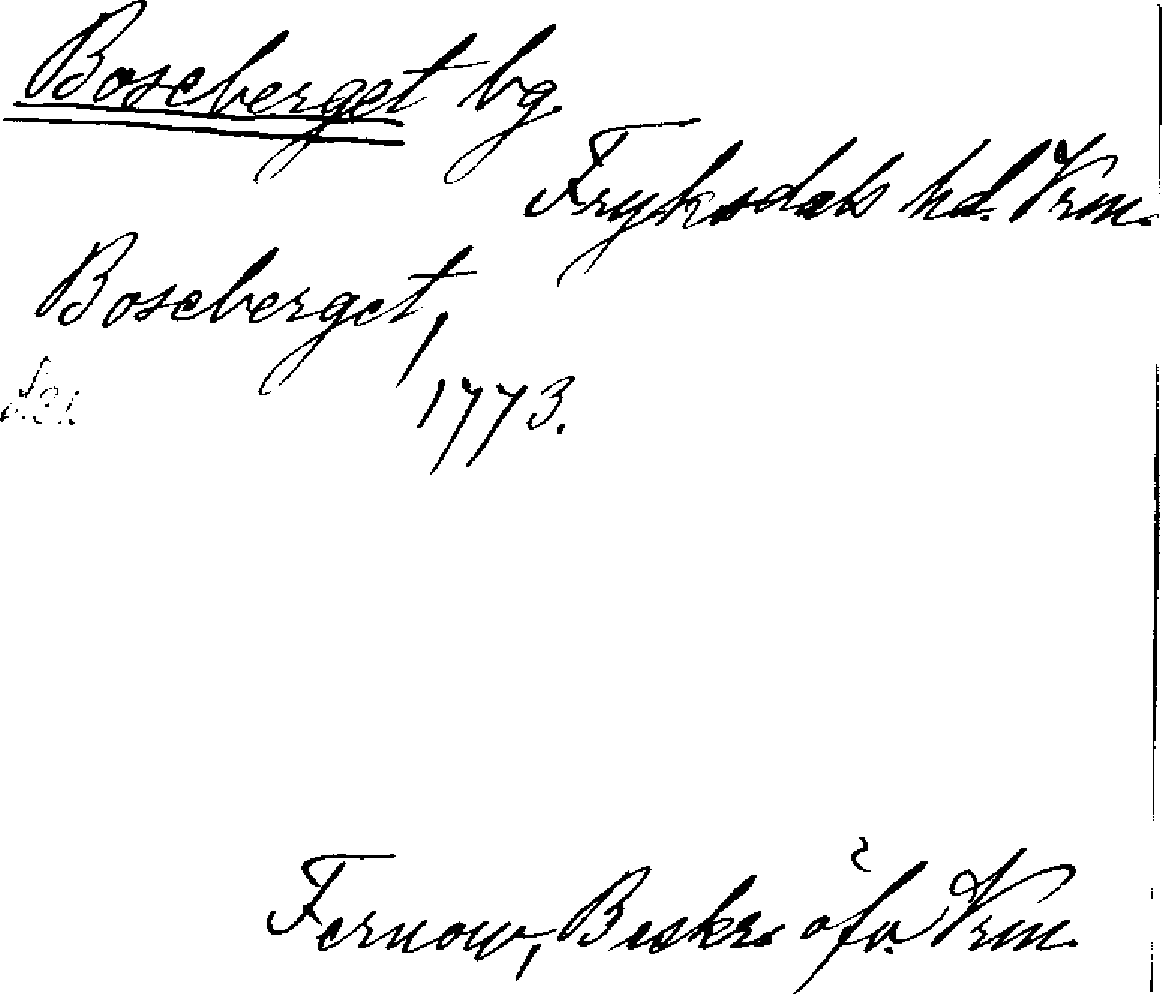 Boseberget bg.
Fryksdals hd. Vrm.
Boseberget,
1773.
Fernow, Beskr. öfv. Vrm.